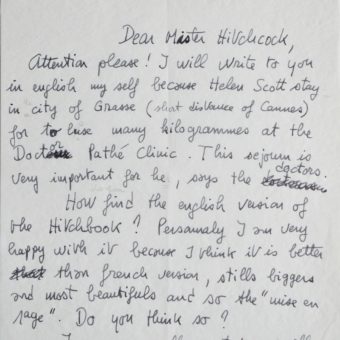 Dear Mister Hitchcock,
Attention please! I will write to you
in english my self because Helen Scott stay
in city of Grasse (short distance of Cannes)
for to luse many kilogrammes at the
Doctor Pathé Clinic. This sejourn is
very important for he, says the doctors.
How find the english version of
the Hitchbook? Personaly I am very
happy with it because I think it is better
that than french version, stills biggers
and most beautifuls and so the "mise en
page". Do you think so?